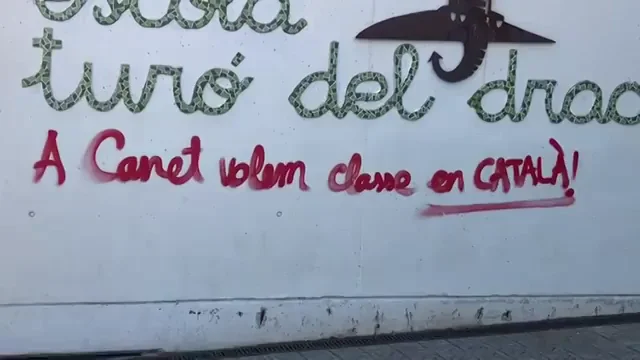 escola
turó del drac
A Canet volem classe en CATALÀ!